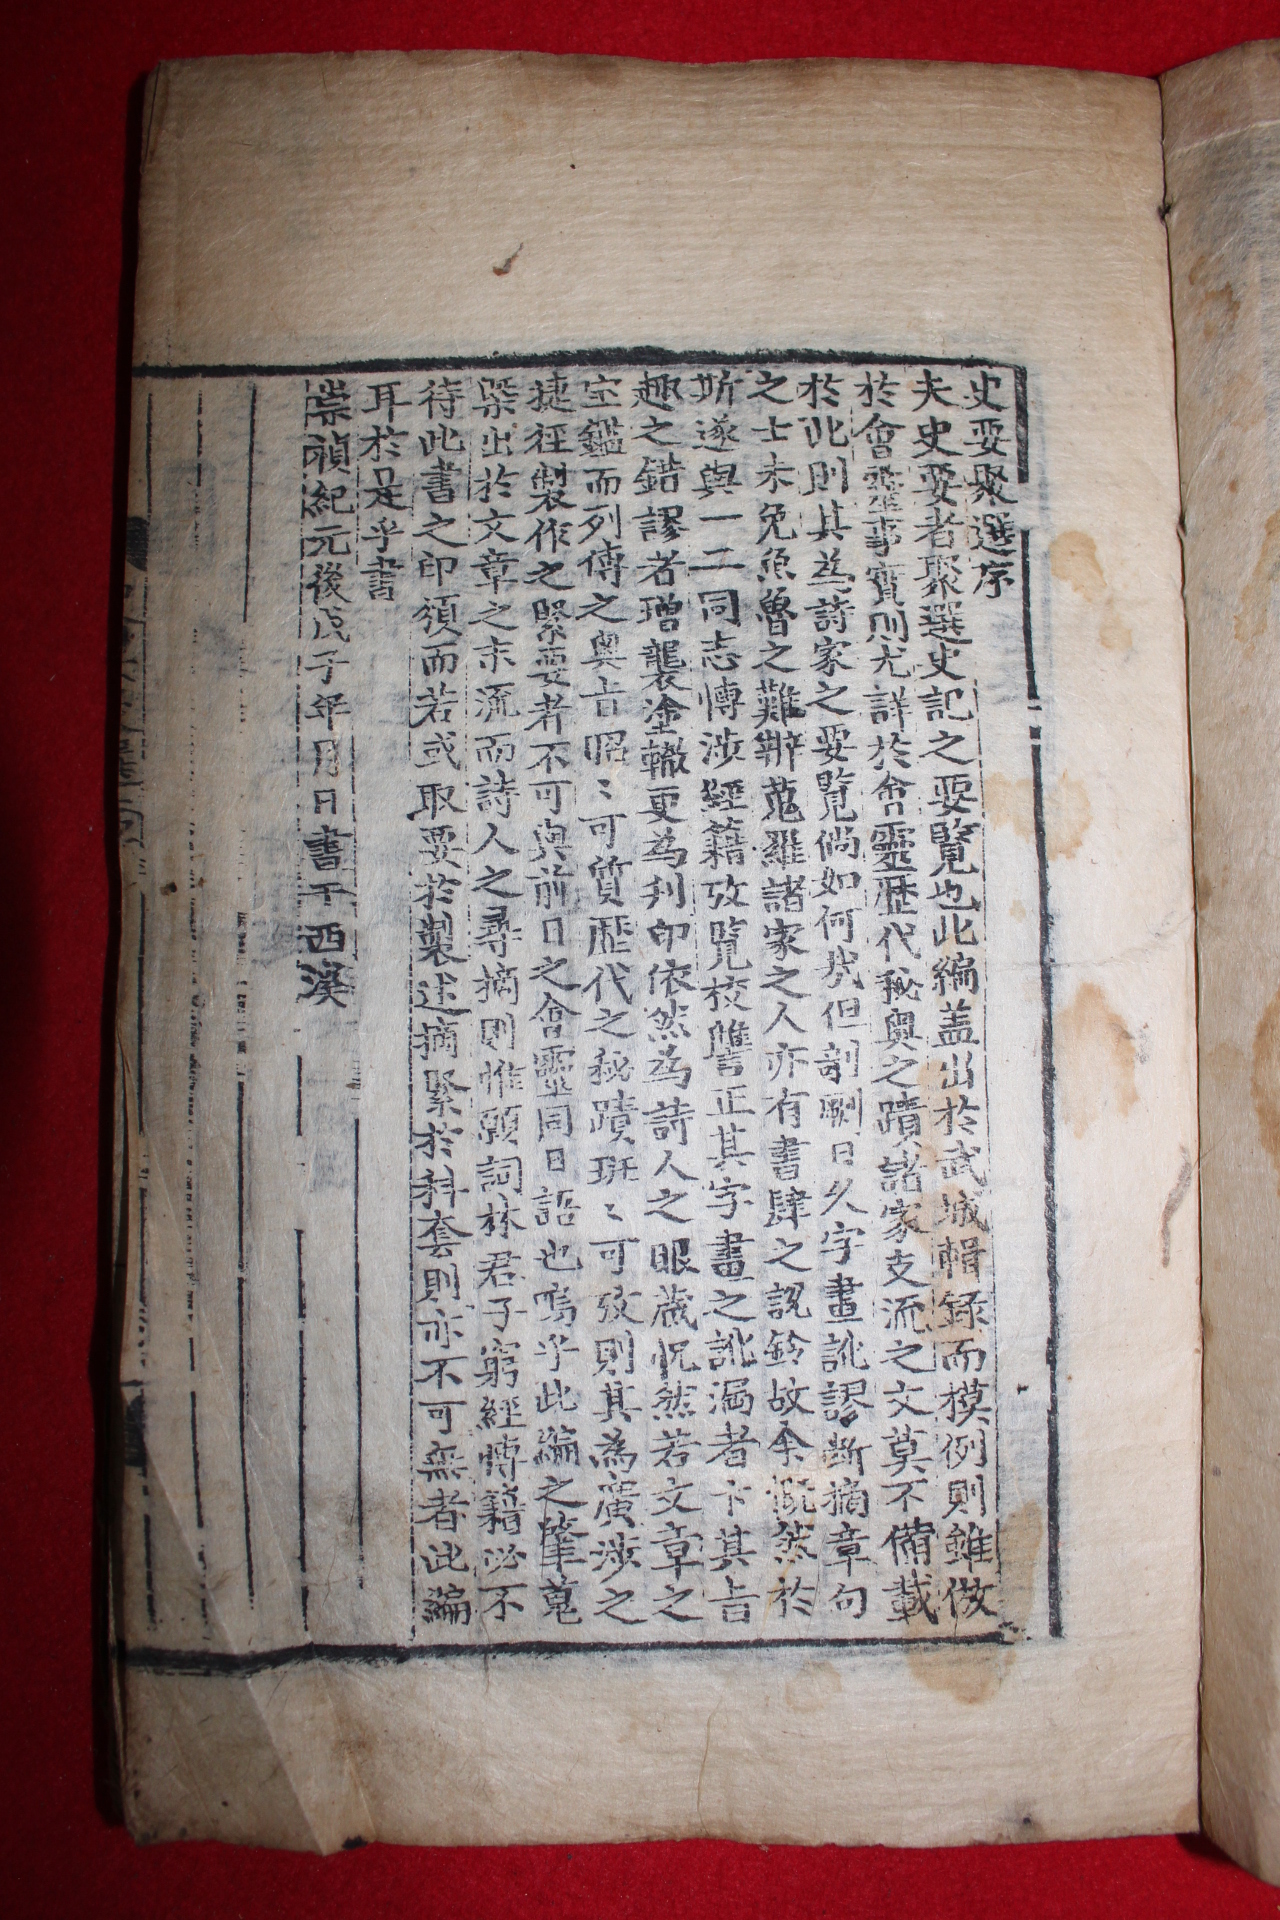 史要聚選序
夫史要者聚選史記之要覽也此編盖出於武城輯録而模例則雖倣
於會靈事實則尤詳於會靈歷代秘奥之蹟諸家支流之文莫不備載
於此則其為詩家之要覽倘如何哉但剞劂日久字畫訛謬断摘章句
之士未免魚魯之難辨蒐羅諸家之人亦有書肆之說鈴故余慨然於
斯遂與一二同志愽涉經籍攷覧校讐正其字畫之訛漏者卞其旨
趣之錯謬者增襲塗轍更為刋印依然為詩人之眼蔵怳然若文章之
宝鑑而列傳之奥旨昭〻可質歷代之秘蹟班〻可攷則其為廣涉之
捷徑製作之緊要者不可與前日之會靈同日語也嗚乎此編之肇蒐
槩出於文章之末流而詩人之尋摘則惟願詞林君子窮經愽籍必不
待此書之印頒而若或取要於製述摘緊於科套則亦不可無者此編
耳於是乎書
崇禎紀元後戊子年月日書于西溪